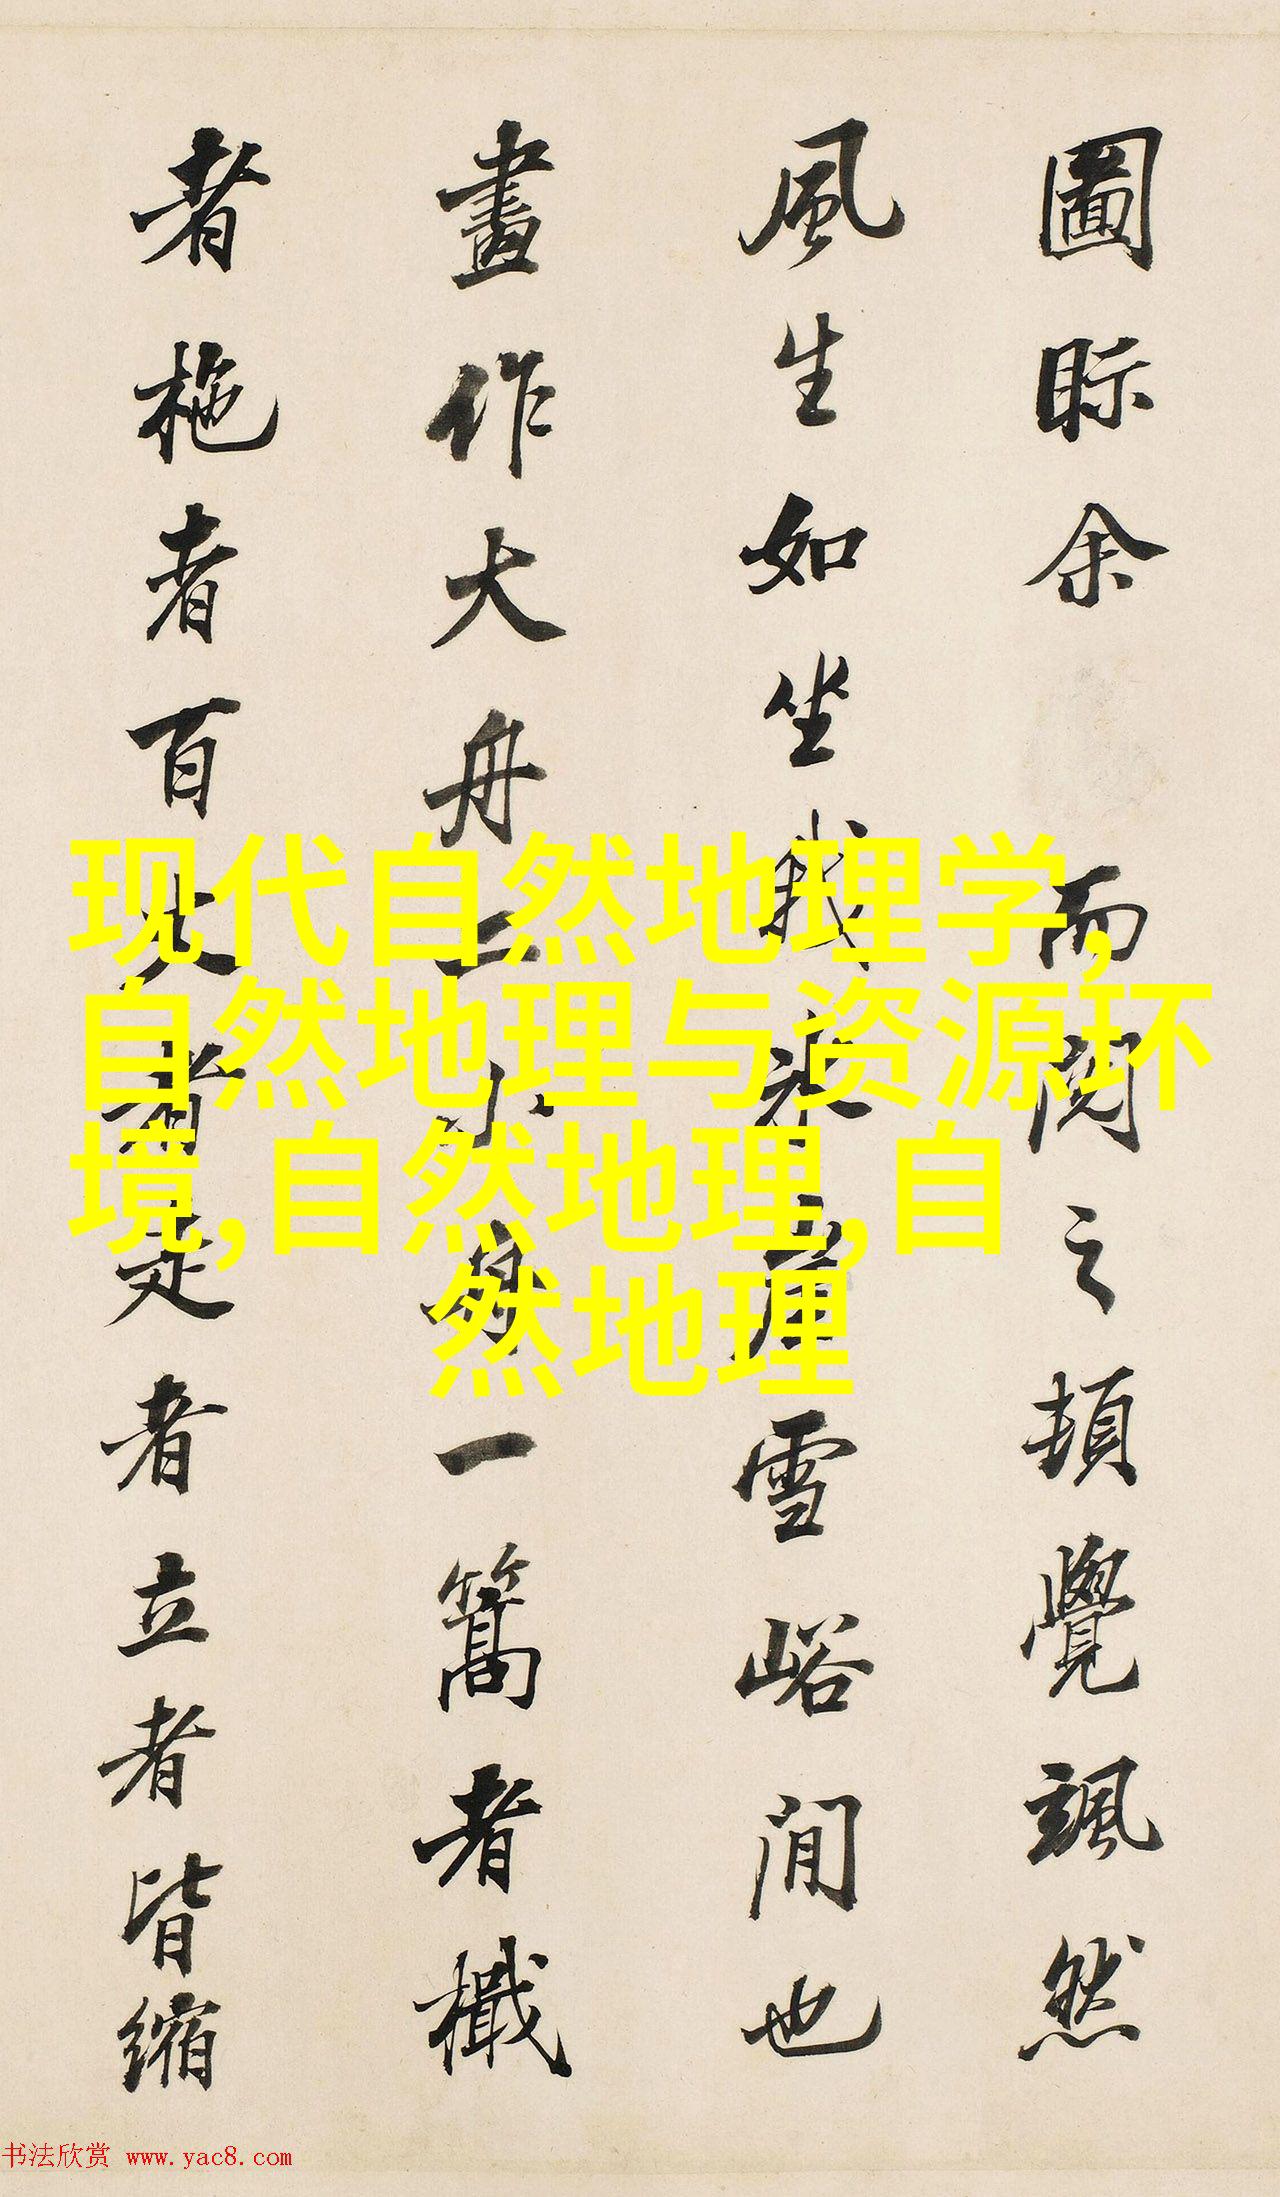 圖眎余而閱之頓覺颯然
風生如坐我氷崖雪峪間也
畫作大舟二小舟一篙者檝
者柂者百丈者走者立者皆縮
现代自然地理学,
自然地理与资源环
境,自然地理,自
然地理
书法欣赏 www.yac8.com